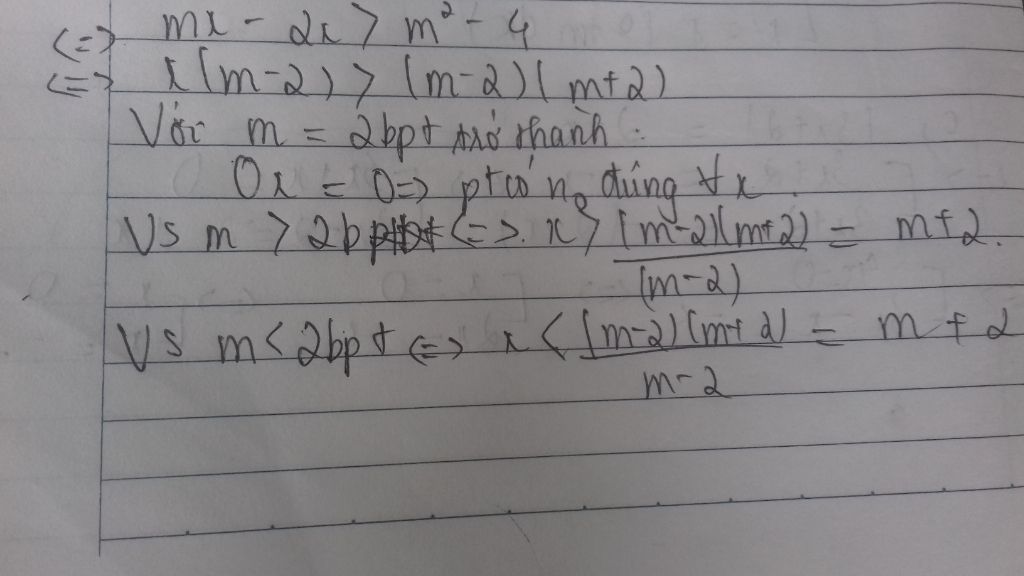 <=> mx - 2x > m² - 4
<=> x(m-2) > (m-2)(m+2)
Với m = 2 bpt trở thành:
0x = 0 => pt có n₀ đúng ∀x.
Vs m > 2 b <=> x > (m-2)(m+2)/(m-2) = m+2.
Vs m < 2 bpt <=> x < (m-2)(m+2)/m-2 = m+2